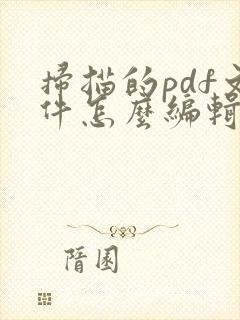 掃描的pdf文
件怎麽編輯
隋園